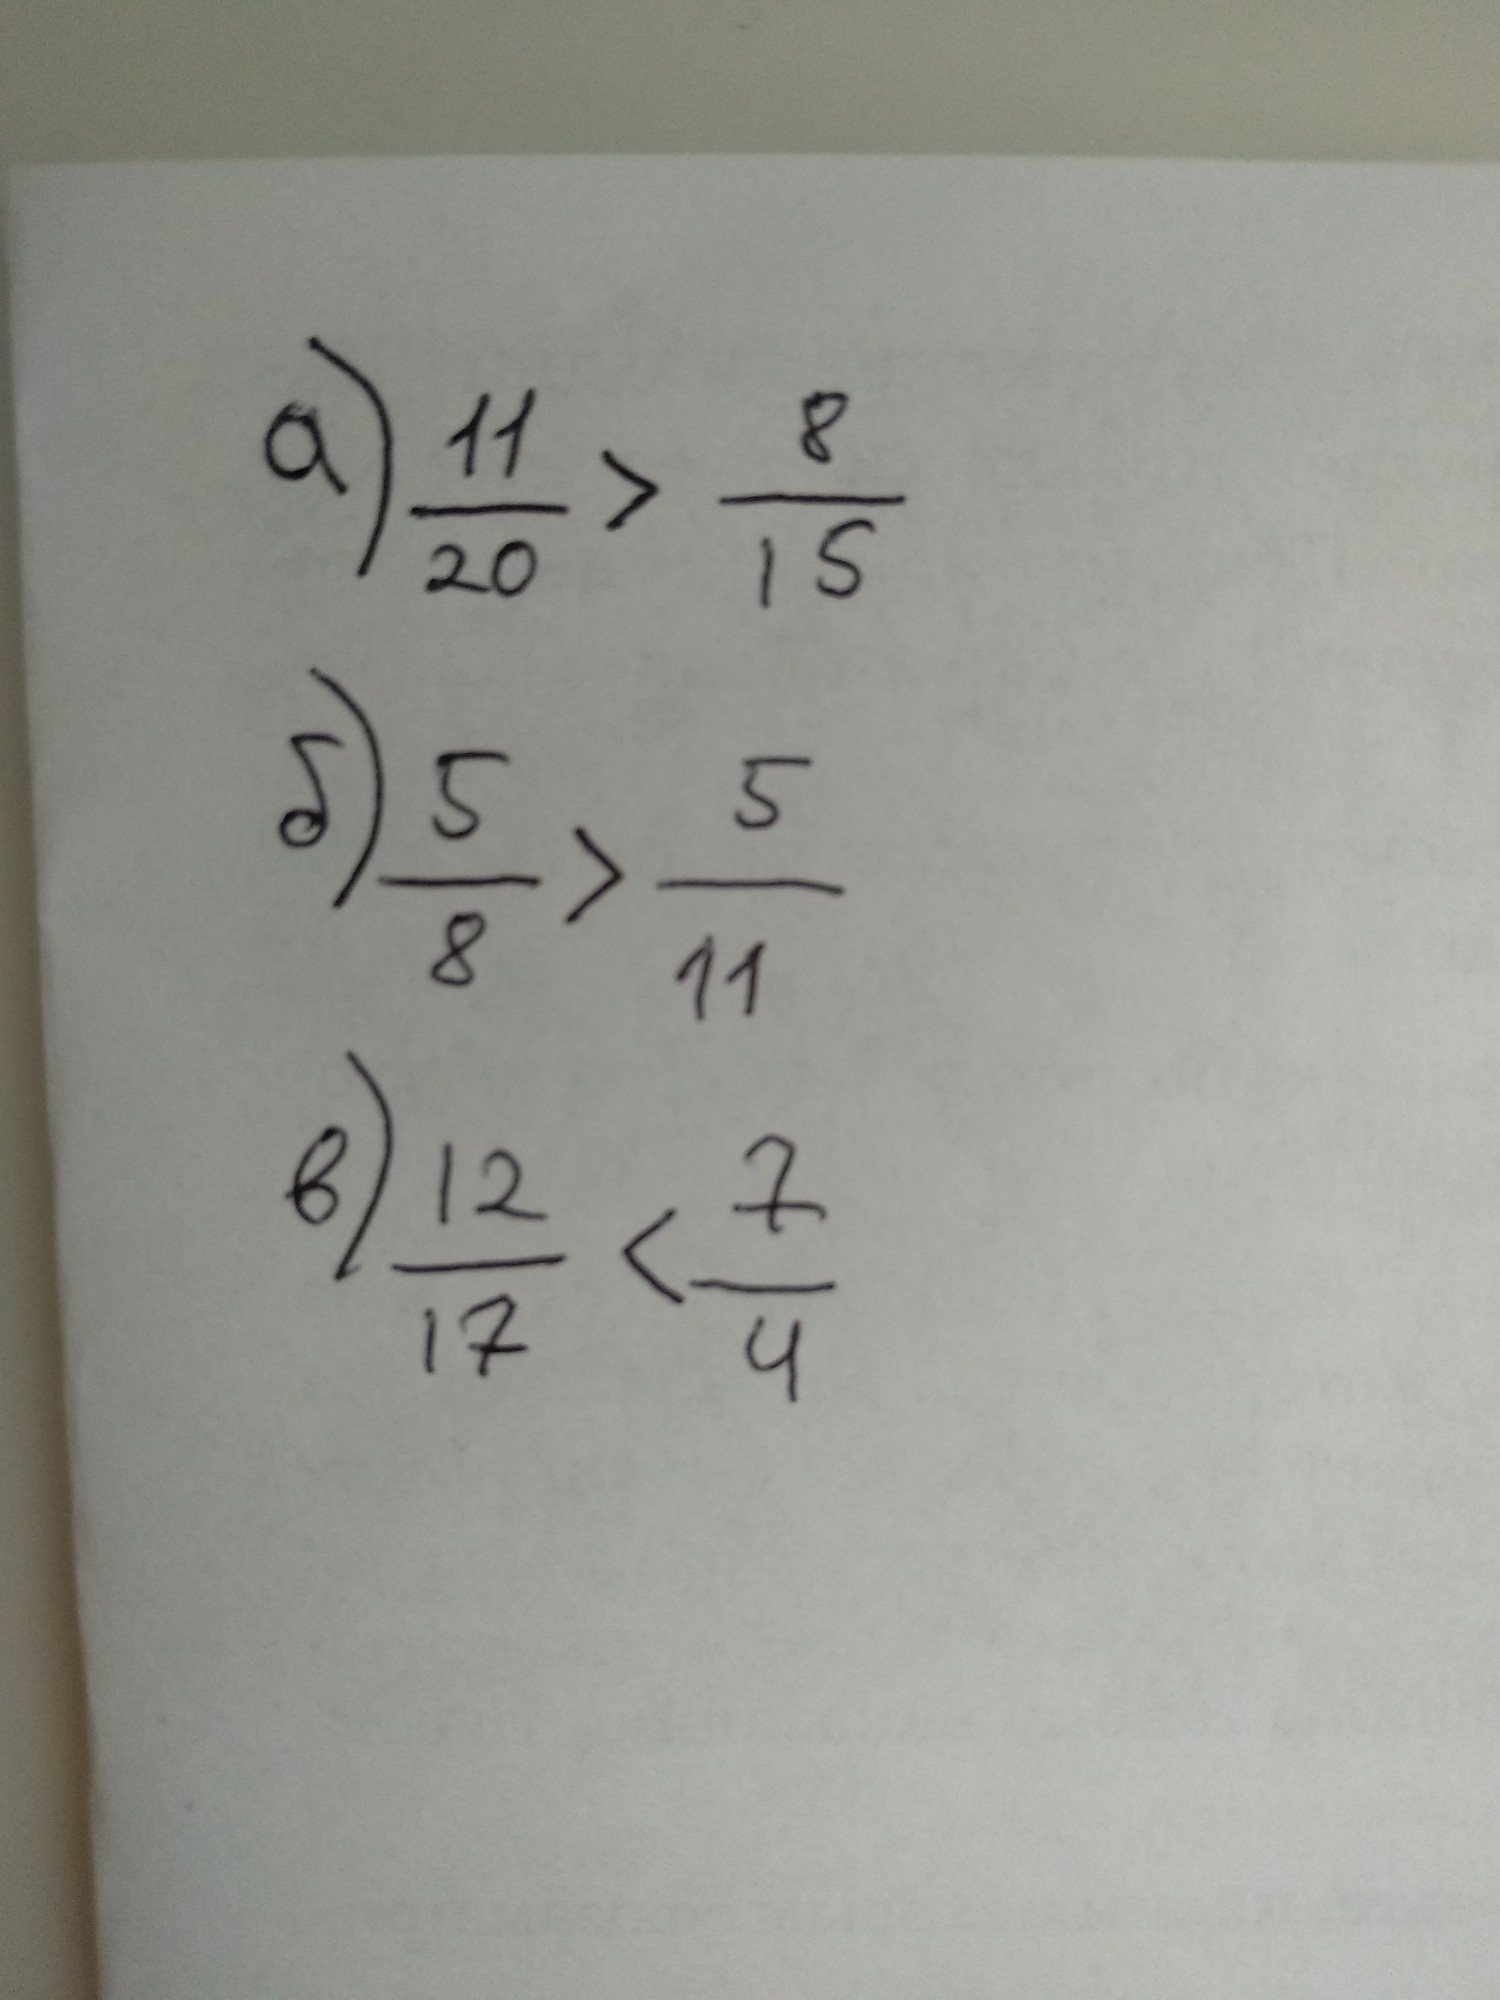 а) 11/20 > 8/15
б) 5/8 > 5/11
в) 12/17 < 7/4